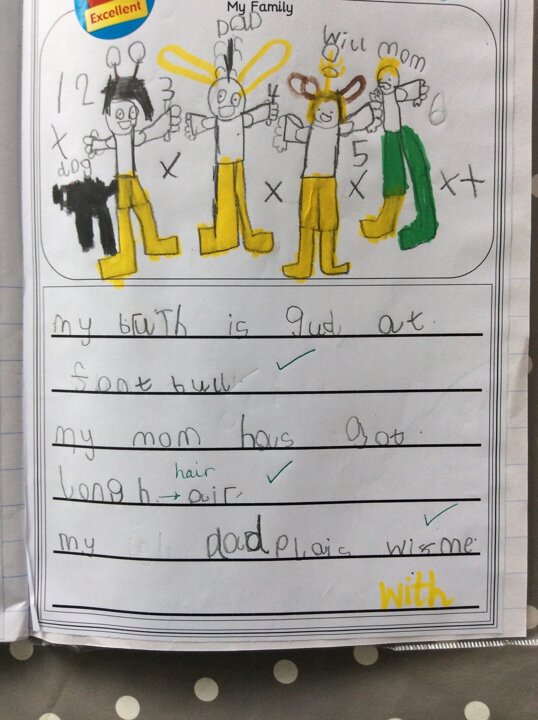 Excellent
My Family
DAD
Will
Mom
12
3
4
5
6
dog
my bruTh is gud at.
foot bull
my mom has got.
long h. → air.
hair
my dad plais wis me
with